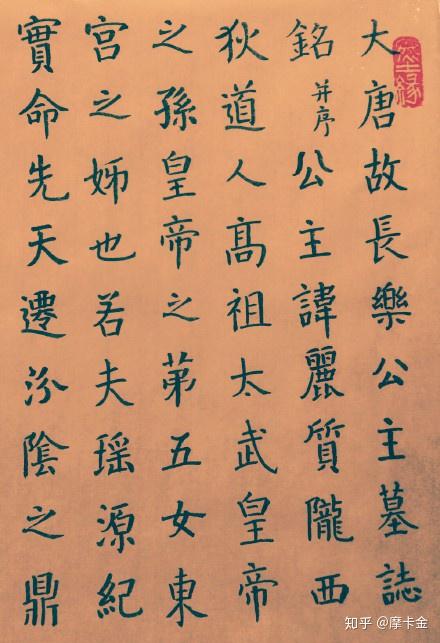 大唐故長樂公主墓誌
銘并序公主諱麗質隴西
狄道人髙祖太武皇帝
之孫皇帝之苐五女東
宮之姊也若夫瑶源紀
實命先天遷汾陰之鼎
知乎 @摩卡金